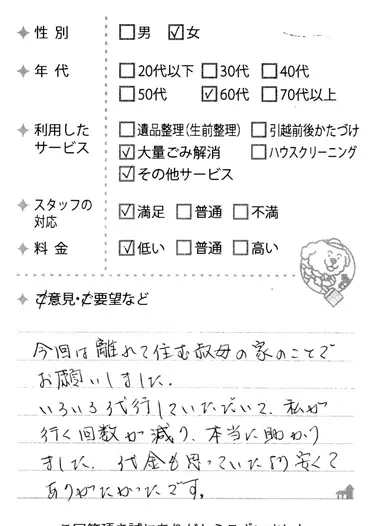 性別 □男 ☑女
年代 □20代以下 □30代 □40代
□50代 ☑60代 □70代以上
利用した
サービス
□遺品整理(生前整理) □引越前後かたづけ
☑大量ごみ解消 □ハウスクリーニング
☑その他サービス
スタッフの
対応
☑満足 □普通 □不満
料金 ☑低い □普通 □高い
ご意見・ご要望など
今回は離れて住む叔母の家のことで
お願いしました.
いろいろ代行していただいて、私が
行く回数が減り、本当に助かり
ました. 代金も思っていたより安くて
ありがたかったです。